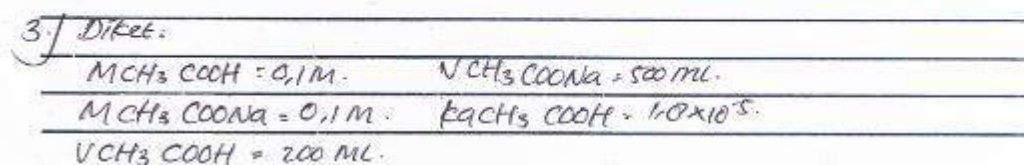 3. Diket:
MCH3 COOH = 0,1 M. VCH3COONa = 500 ml.
MCH3 COONa = 0,1 M. KaCH3 COOH = 1,0 x 10-5.
VCH3 COOH = 200 ML.